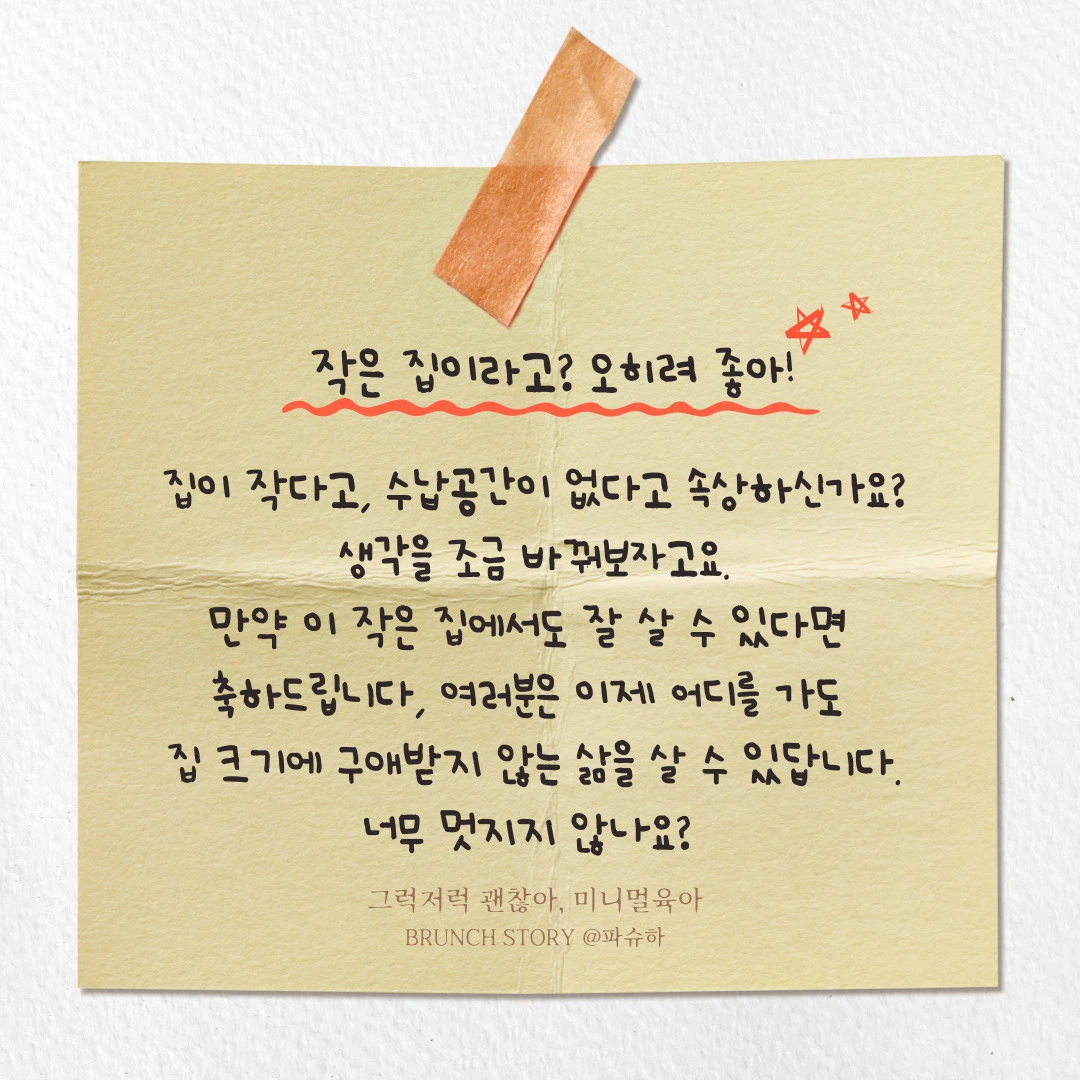 작은 집이라고? 오히려 좋아!
집이 작다고, 수납공간이 없다고 속상하신가요?
생각을 조금 바꿔보자고요.
만약 이 작은 집에서도 잘 살 수 있다면
축하드립니다, 여러분은 이제 어디를 가도
집 크기에 구애받지 않는 삶을 살 수 있답니다.
너무 멋지지 않나요?
그럭저럭 괜찮아, 미니멀육아
BRUNCH STORY @파슈하